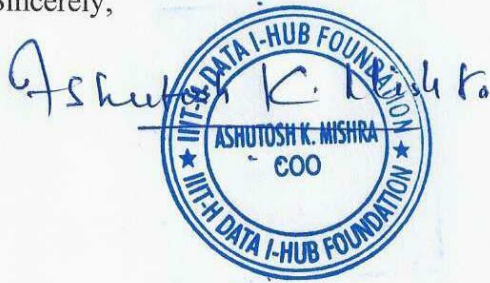 Sincerely,
Ashutosh K. Mishra
IIIT-H DATA I-HUB FOUNDATION
ASHUTOSH K. MISHRA
COO
IIIT-H DATA I-HUB FOUNDATION